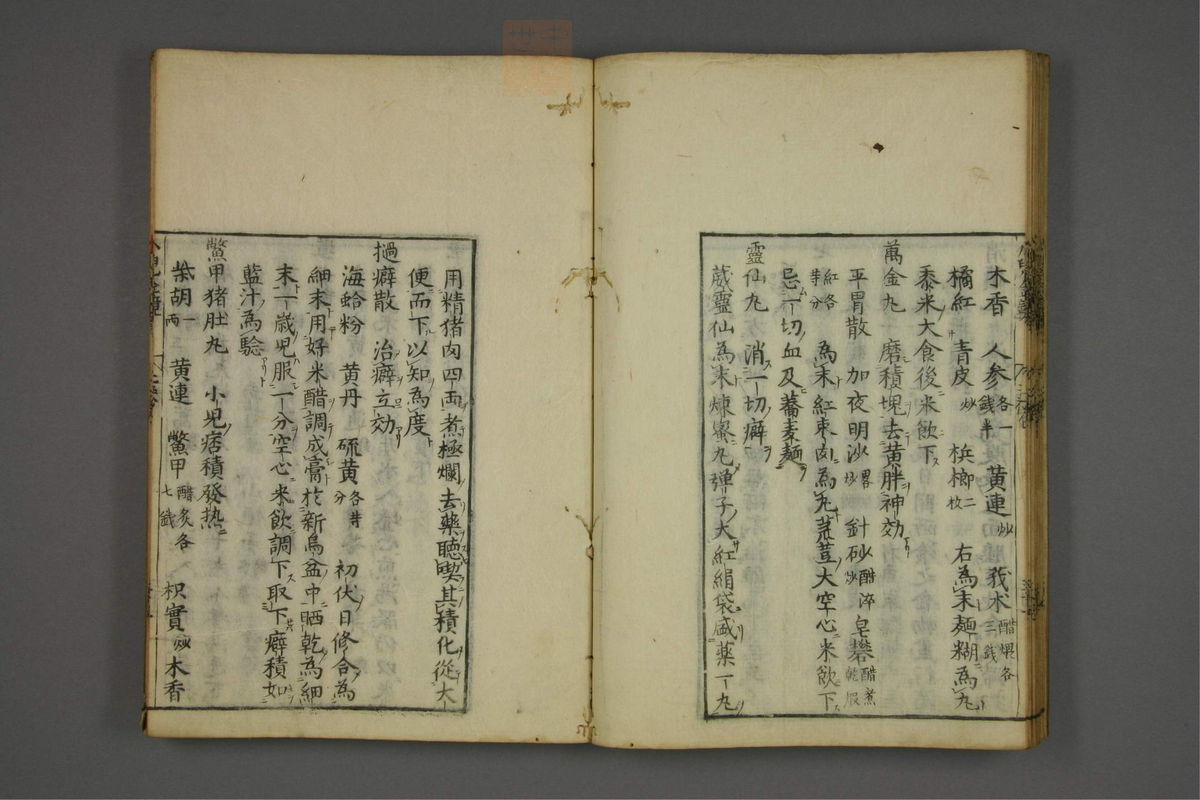 木香 人参各一錢半 黄連炒 莪朮醋煨各三錢
橘紅 青皮炒 梹榔二枚 右為末麺糊為丸
黍米大食後米飲下
萬金丸 磨積塊去黄胖神効
平胃散 加夜明沙畧炒 針砂醋淬炒 皂礬醋煮乾
紅各等分 為末紅枣肉為丸菉荳大空心米飲下
忌一切血及蕎麦麺
靈仙丸 消一切癖
葳靈仙為末煉蜜丸弾子大紅絹袋盛薬一丸
用精猪肉四両煮極爛去薬聴喫其積化從大
便而下以知為度
撾癖散 治癖立効
海蛤粉 黄丹 硫黄各等分 初伏日修合為
細末用好米醋調成膏於新烏盆中晒乾為細
末一歳児服一分空心米飲調下取下癖積如
藍汁為驗
鱉甲猪肚丸 小児痞積發热
柴胡一両 黄連 鱉甲醋炙各七錢 枳實炒 木香